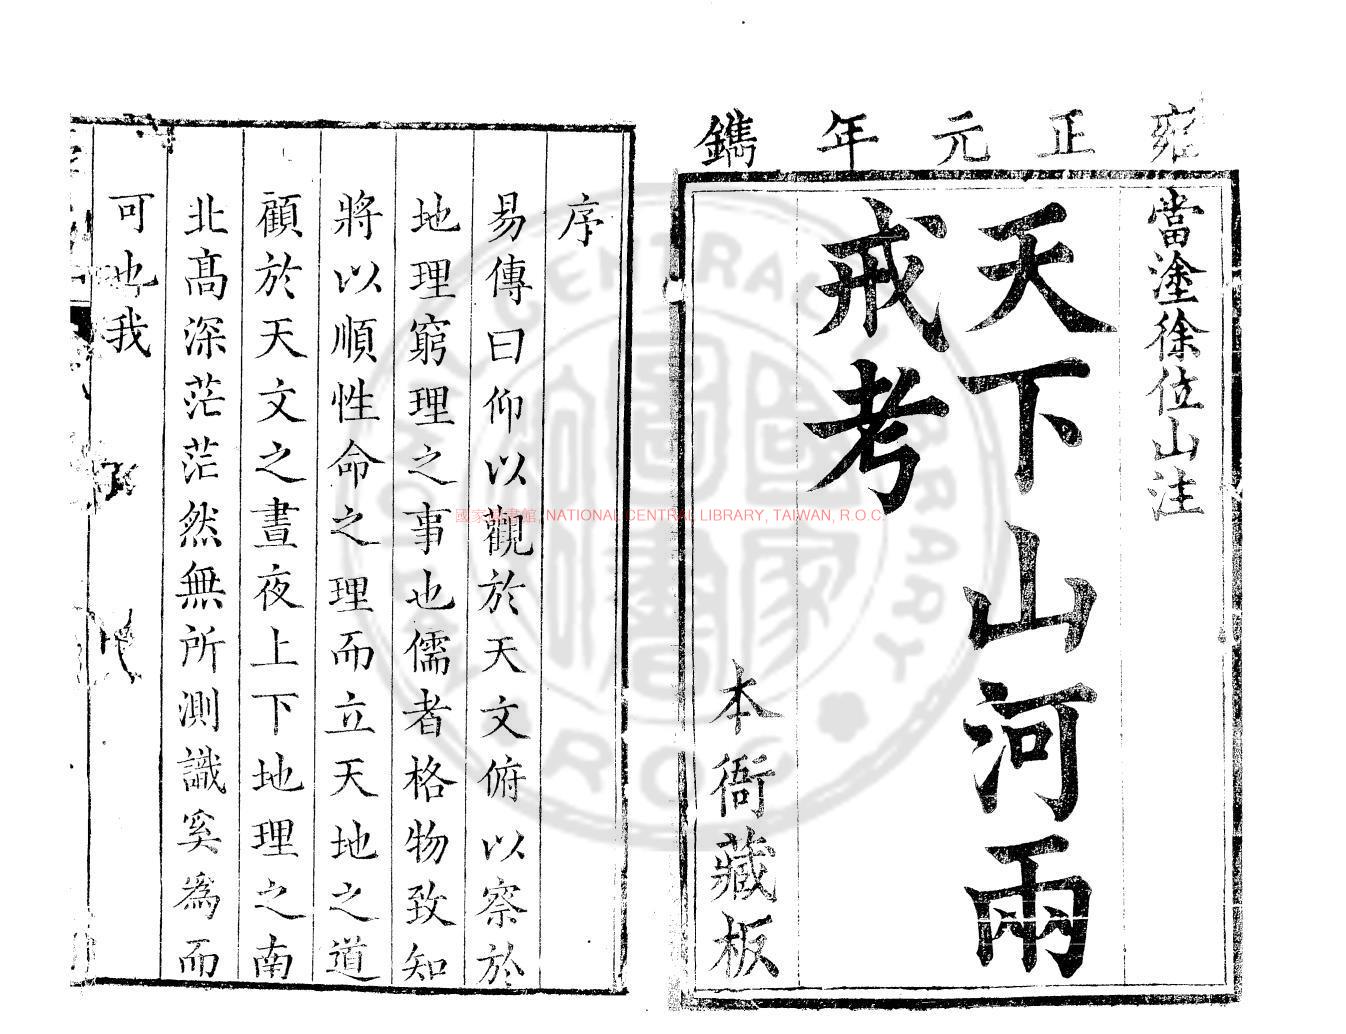 雍正元年鐫
當塗徐位山注
天下山河兩
戒考
本衙藏板
序
易傳曰仰以觀於天文俯以察於
地理窮理之事也儒者格物致知
將以順性命之理而立天地之道
顧於天文之晝夜上下地理之南
北高深茫茫然無所測識奚為而
可也我
國家圖書館 NATIONAL CENTRAL LIBRARY, TAIWAN, R.O.C.